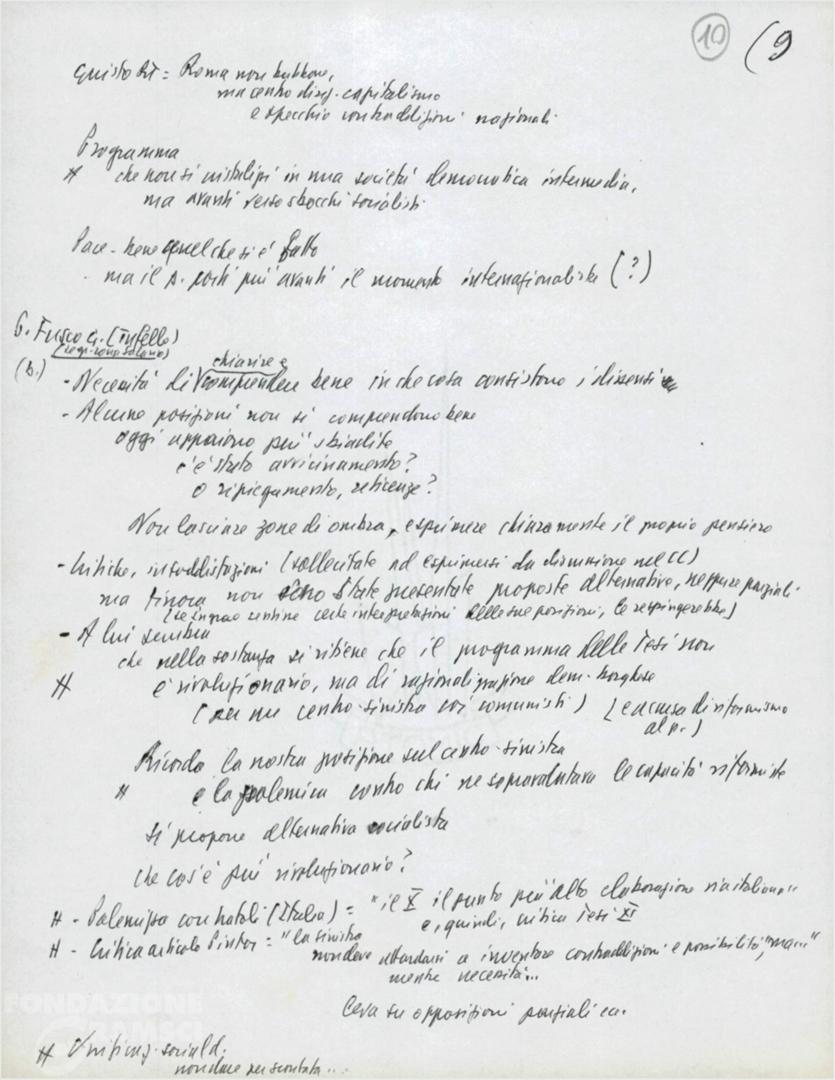 10 (9
Giusto RT = Roma non bubbone,
ma centro disg. capitalismo
e specchio contraddizioni nazionali
Programma
# che non si cristalizzi in una società democratica intermedia,
ma avanti verso sbocchi socialisti
Pace - bene quel che si è fatto
- ma il p. porti più avanti il momento internazionalista (?)
6. Fusco G. (Tufello)
(segr. zona Salario)
(b.)
chiarire e
- Necessità di comprendere bene in che cosa consistono i dissensi
- Alcune posizioni non si comprendono bene
oggi appaiono più sbiadite
c'è stato avvicinamento?
o ripiegamento, reticenze?
Non lasciare zone di ombra, esprimere chiaramente il proprio pensiero
- Critiche, insoddisfazioni (sollecitate ad esprimersi da discussione nel CC)
ma finora non sono state presentate proposte alternative, neppure parziali
(se Ingrao sentisse certe interpretazioni delle sue posizioni, le respingerebbe)
- A lui sembra
che nella sostanza si ritiene che il programma delle Tesi non
# è rivoluzionario, ma di razionalizzazione dem-borghese
(per un centro-sinistra coi comunisti) (e accusa di riformismo
al p.)
Ricorda la nostra posizione sul centro-sinistra
# e la polemica contro chi ne sopravalutava le capacità riformiste
si propone alternativa socialista
che cos'è più rivoluzionario?
# - Polemizza con Natoli (Italia) = "il X il punto più alto elaborazione via italiana"
e, quindi, critica Tesi XI
# - Critica articolo Pintor = "la sinistra
non deve attardarsi a inventare contraddizioni e possibilità", "ma..."
mentre necessità...
su opposizioni parziali ecc.
# Unificaz. sociald.
non dare per scontata...
FONDAZIONE
GRAMSCI